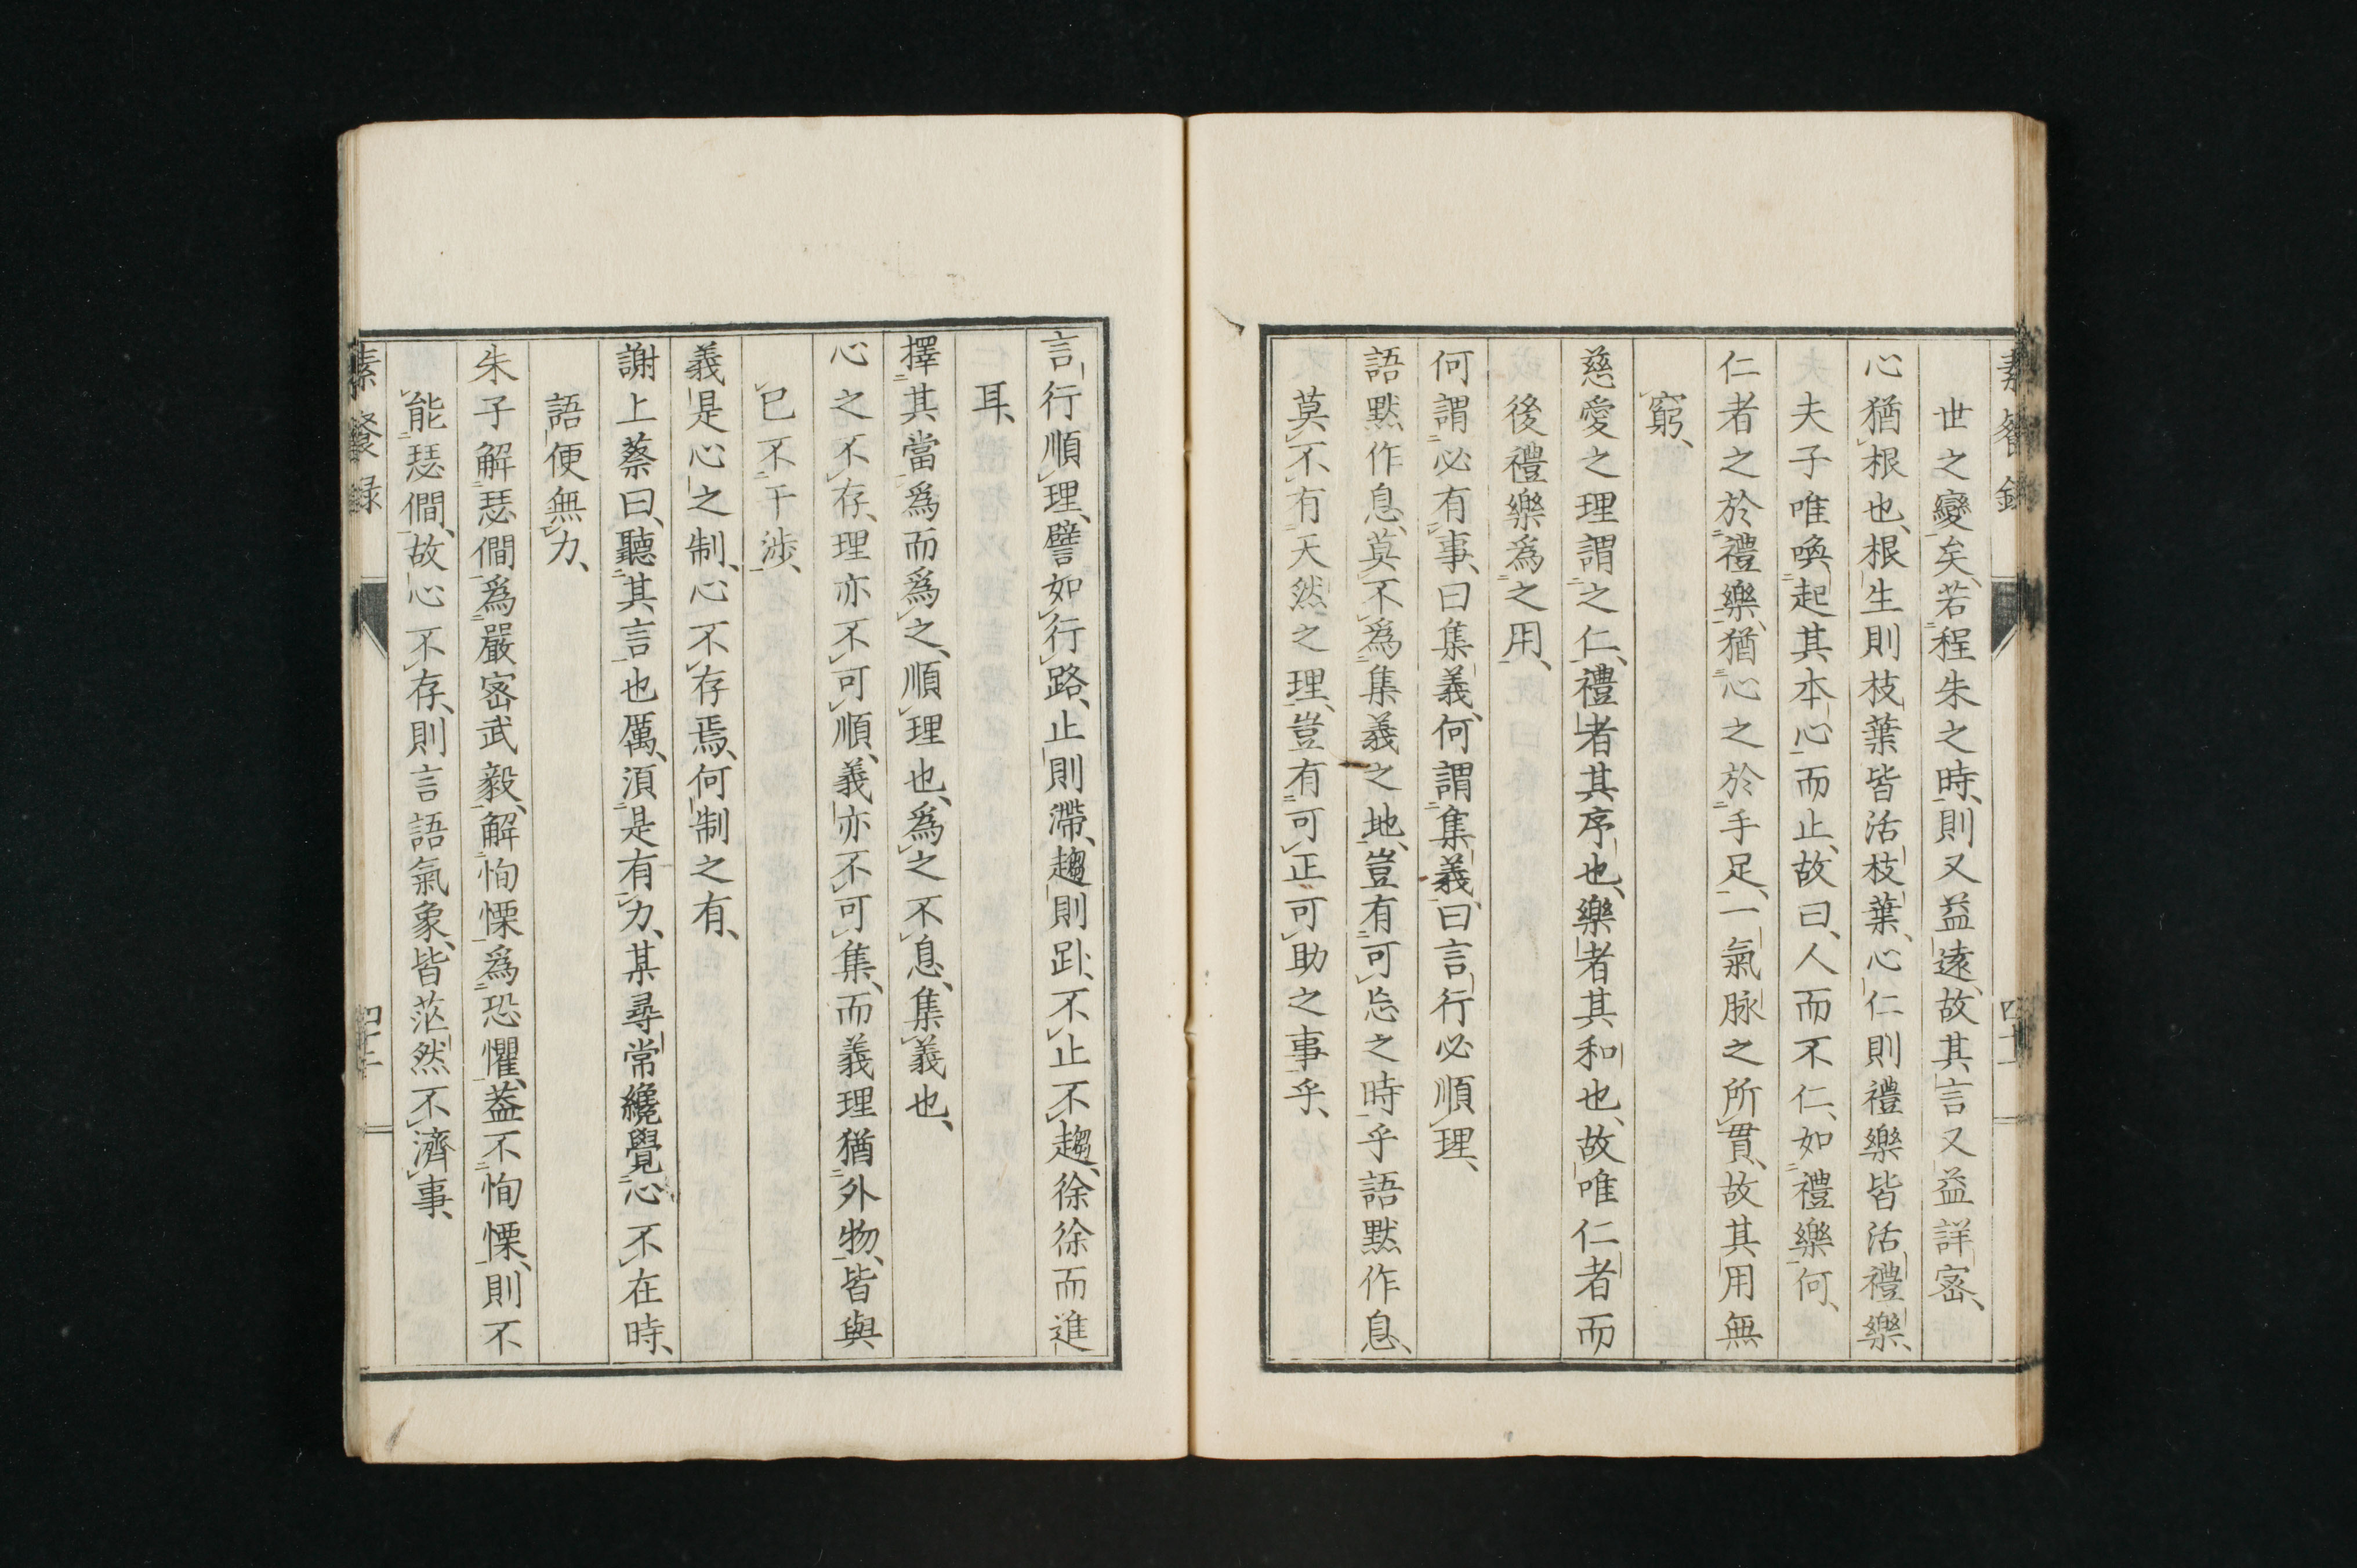 素餐錄
四十一
世之變矣、若程朱之時、則又益遠、故其言又益詳密、
心猶根也、根生則枝葉皆活枝葉、心仁則禮樂皆活禮樂、
夫子唯喚起其本心而止、故曰、人而不仁、如禮樂何、
仁者之於禮樂、猶心之於手足、一氣脉之所貫、故其用無
窮、
慈愛之理謂之仁、禮者其序也、樂者其和也、故唯仁者而
後禮樂爲之用、
何謂必有事、曰集義、何謂集義、曰言行必順理、
語默作息、莫不爲集義之地、豈有可忘之時乎語默作息、
莫不有天然之理、豈有可正可助之事乎、
言行順理、譬如行路、止則滯、趨則趴、不止不趨、徐徐而進
耳、
擇其當爲而爲之、順理也、爲之不息、集義也、
心之不存、理亦不可順、義亦不可集、而義理猶外物、皆與
己不干涉、
義是心之制、心不存焉、何制之有、
謝上蔡曰、聽其言也厲、須是有力、某尋常纔覺心不在時、
語便無力、
朱子解瑟僩爲嚴密武毅、解恂慄爲恐懼、蓋不恂慄、則不
能瑟僩、故心不存、則言語氣象、皆茫然不濟事、
素餐錄
四十二